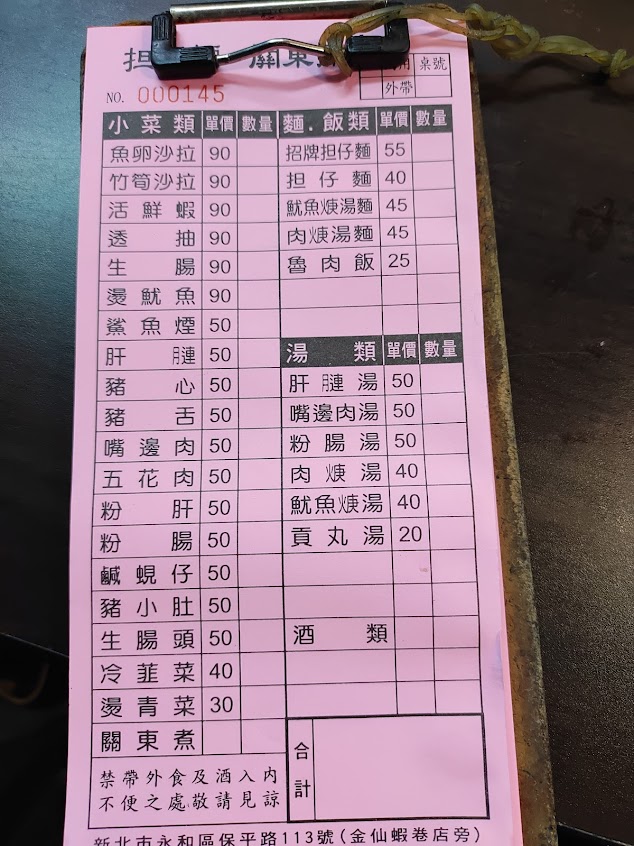 關東
用 桌號
外帶
NO. 000145
小菜類 單價 數量
魚卵沙拉 90
竹筍沙拉 90
活鮮蝦 90
透抽 90
生腸 90
燙魷魚 90
鯊魚煙 50
肝膁 50
豬心 50
豬舌 50
嘴邊肉 50
五花肉 50
粉肝 50
粉腸 50
鹹蜆仔 50
豬小肚 50
生腸頭 50
冷韮菜 40
燙青菜 30
關東煮
禁帶外食及酒入內
不便之處敬請見諒
麵.飯類 單價 數量
招牌担仔麵 55
担仔麵 40
魷魚焿湯麵 45
肉焿湯麵 45
魯肉飯 25
湯類 單價 數量
肝膁湯 50
嘴邊肉湯 50
粉腸湯 50
肉焿湯 40
魷魚焿湯 40
貢丸湯 20
酒類
合計
新北市永和區保平路113號(金仙蝦卷店旁)